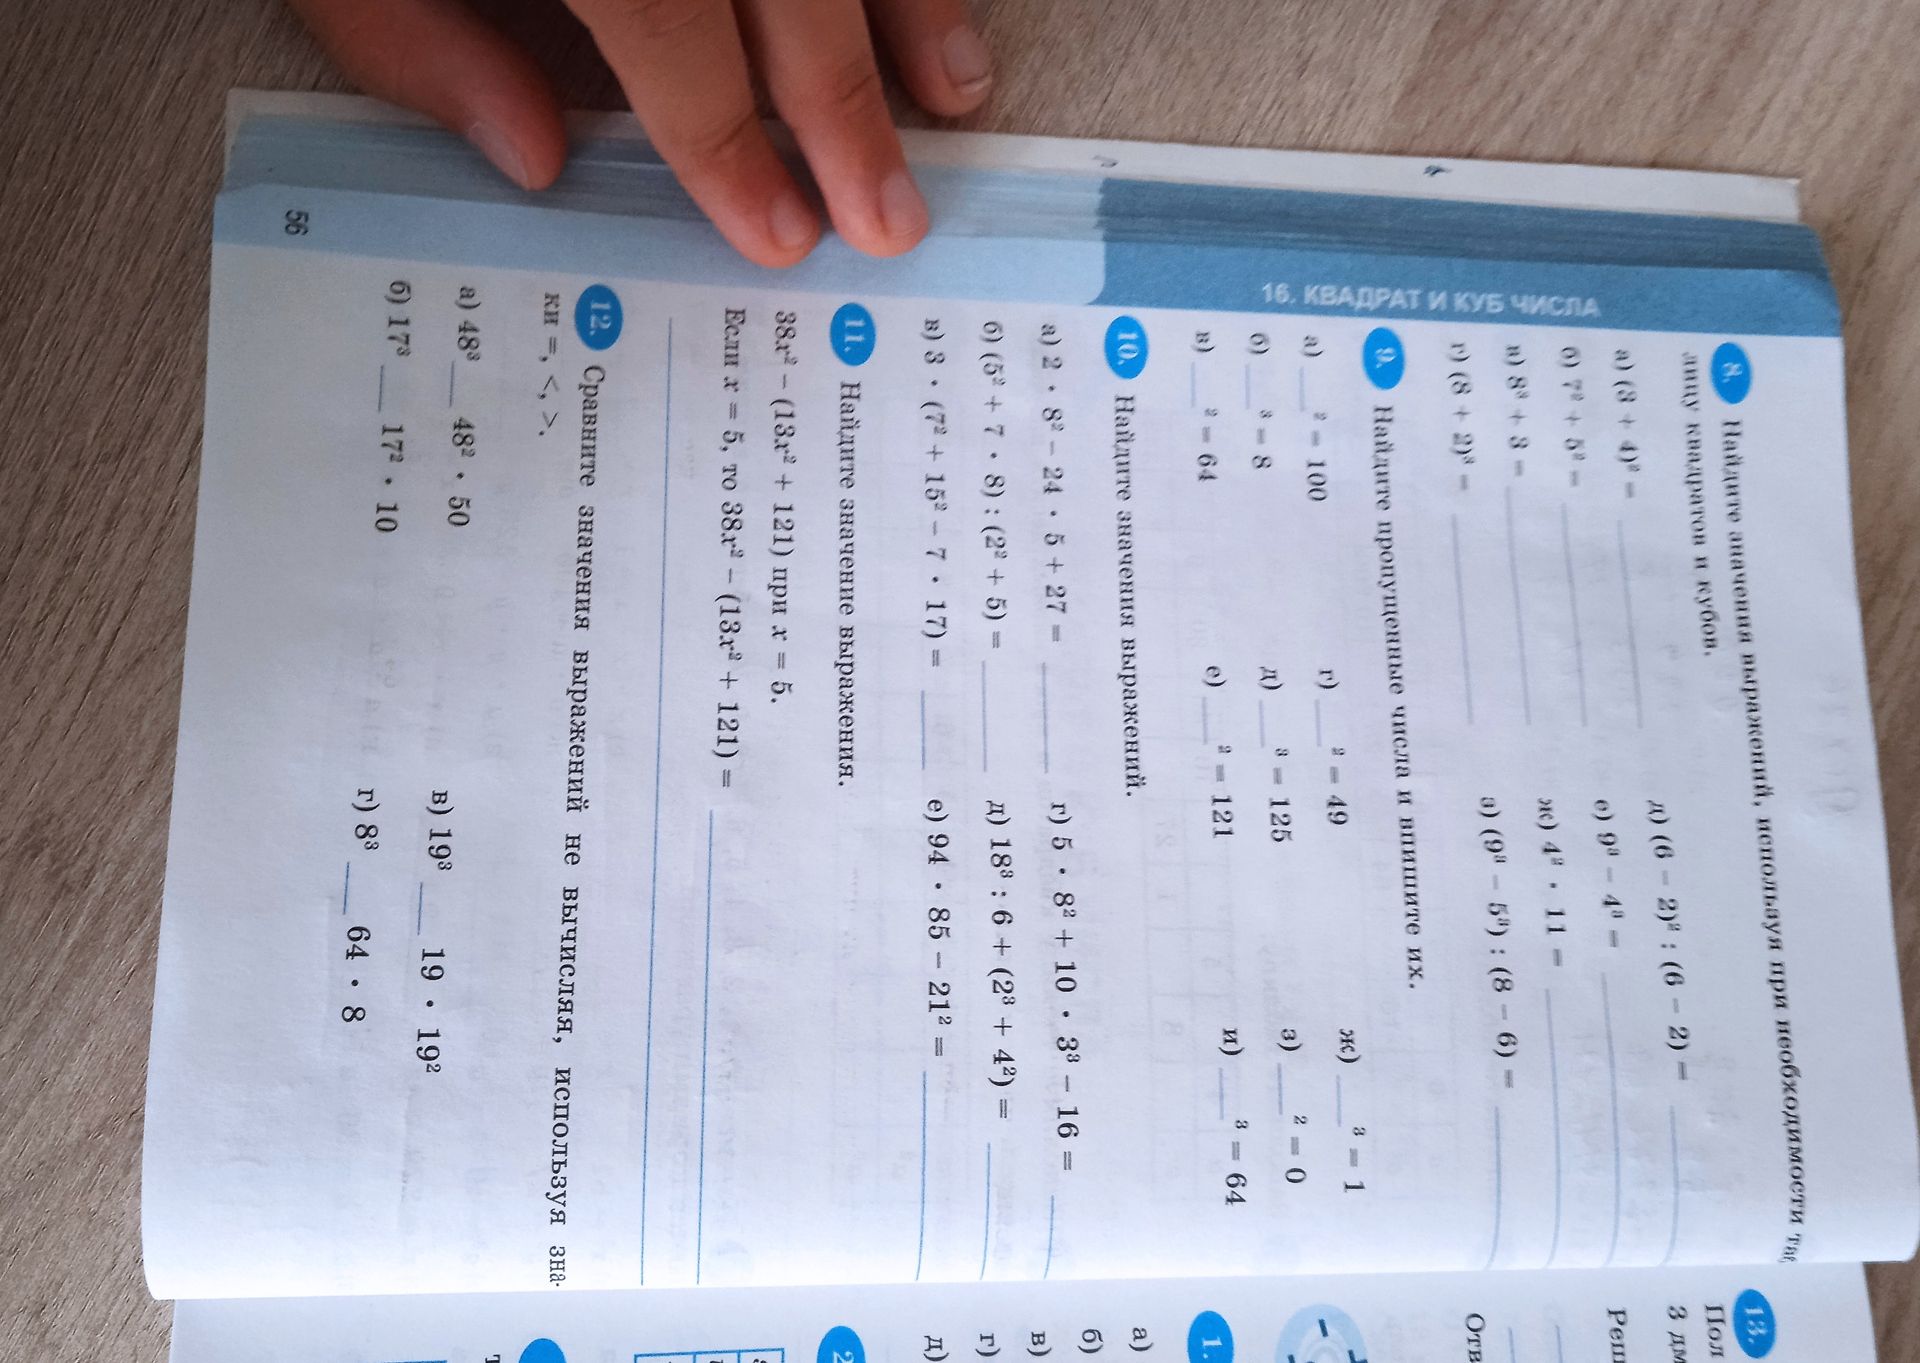 16. КВАДРАТ И КУБ ЧИСЛА
8. Найдите значения выражений, используя при необходимости
лицу квадратов и кубов.
а) (3 + 4)² = ____ д) (6 − 2)² : (6 − 2) = ____
б) 7² + 5² = ____ е) 9³ − 4³ = ____
в) 8³ + 3 = ____ ж) 4² · 11 = ____
г) (8 + 2)³ = ____ з) (9³ − 5³) : (8 − 6) = ____
9. Найдите пропущенные числа и впишите их.
а) ___² = 100 г) ___² = 49 ж) ___³ = 1
б) ___³ = 8 д) ___³ = 125 з) ___² = 0
в) ___² = 64 е) ___² = 121 и) ___³ = 64
10. Найдите значения выражений.
а) 2 · 8² − 24 · 5 + 27 = ____ г) 5 · 8² + 10 · 3³ − 16 = ____
б) (5² + 7 · 8) : (2² + 5) = ____ д) 18³ : 6 + (2³ + 4²) = ____
в) 3 · (7² + 15² − 7 · 17) = ____ е) 94 · 85 − 21² = ____
11. Найдите значение выражения.
38x² − (13x² + 121) при x = 5.
Если x = 5, то 38x² − (13x² + 121) = ____
12. Сравните значения выражений не вычисляя, используя зна-
ки =, <, >.
а) 48³ ___ 48² · 50 в) 19³ ___ 19 · 19²
б) 17³ ___ 17² · 10 г) 8³ ___ 64 · 8
56
13.
Пол
3 дм
Реш
Отв
1.
а)
б)
в)
г)
д)
2